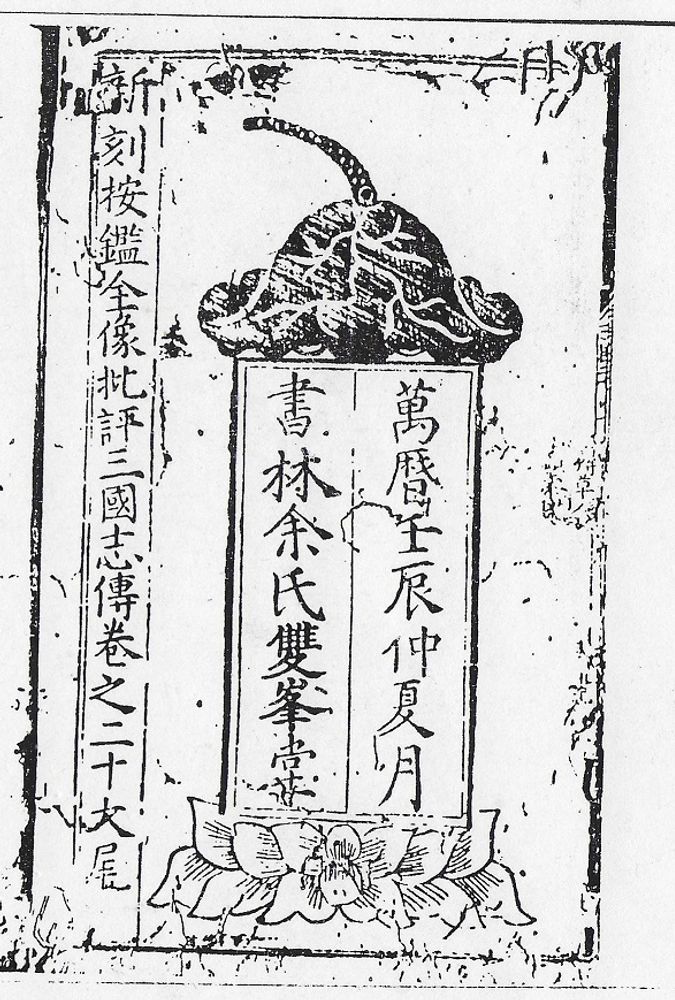 萬曆壬辰仲夏月
書林余氏雙峯堂
新刻按鑑全像批評三國志傳卷之二十大尾